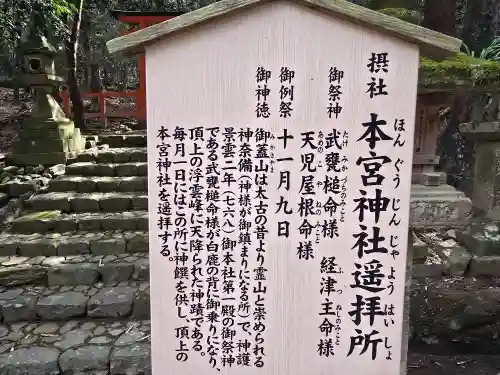 摂社 本宮神社遥拝所
ほんぐうじんじゃようはいしょ
御祭神 武甕槌命様 経津主命様
たけみかづちのみこと ふつぬしのみこと
天児屋根命様
あめのこやねのみこと
御例祭 十一月九日
御神徳 御蓋山は太古の昔より霊山と崇められる
みかさやま
神奈備(神様が御鎮まりになる所)で、神護
景雲二年(七六八)御本社第一殿の御祭神
である武甕槌命様が白鹿の背に御乗りになり、
頂上の浮雲峰に天降られた神蹟である。
毎月一日にはこの所に神饌を供し、頂上の
本宮神社を遥拝する。